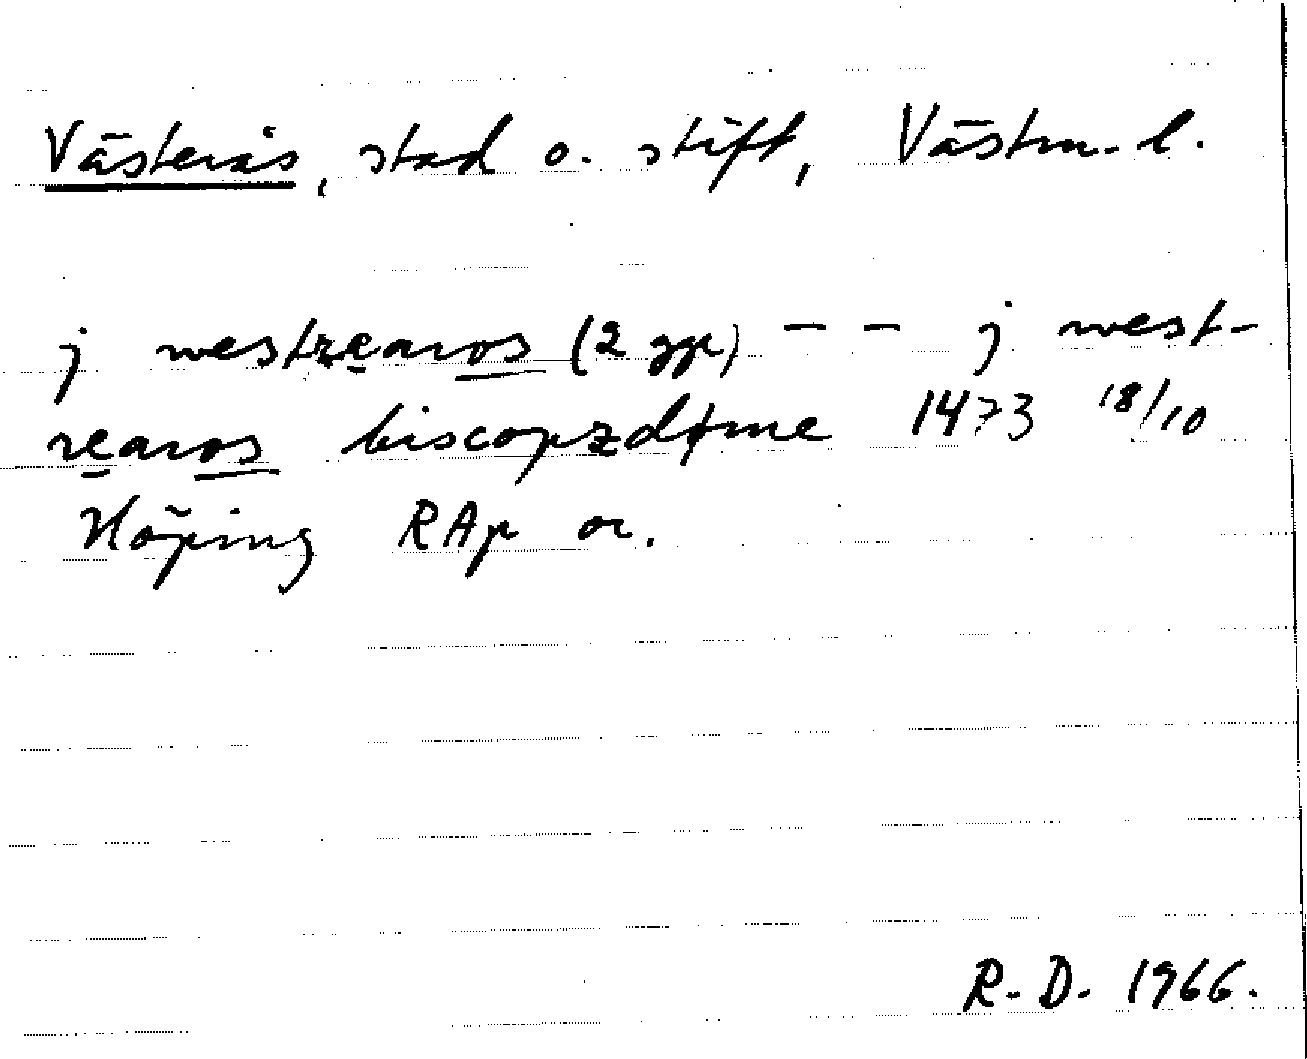 Västerås, stad o. stift, Västm. l.
j westrearos (2 ggr) – – j west-
rearos biscopzdøme 1473 18/10
Köping RAp or.
R. D. 1966.